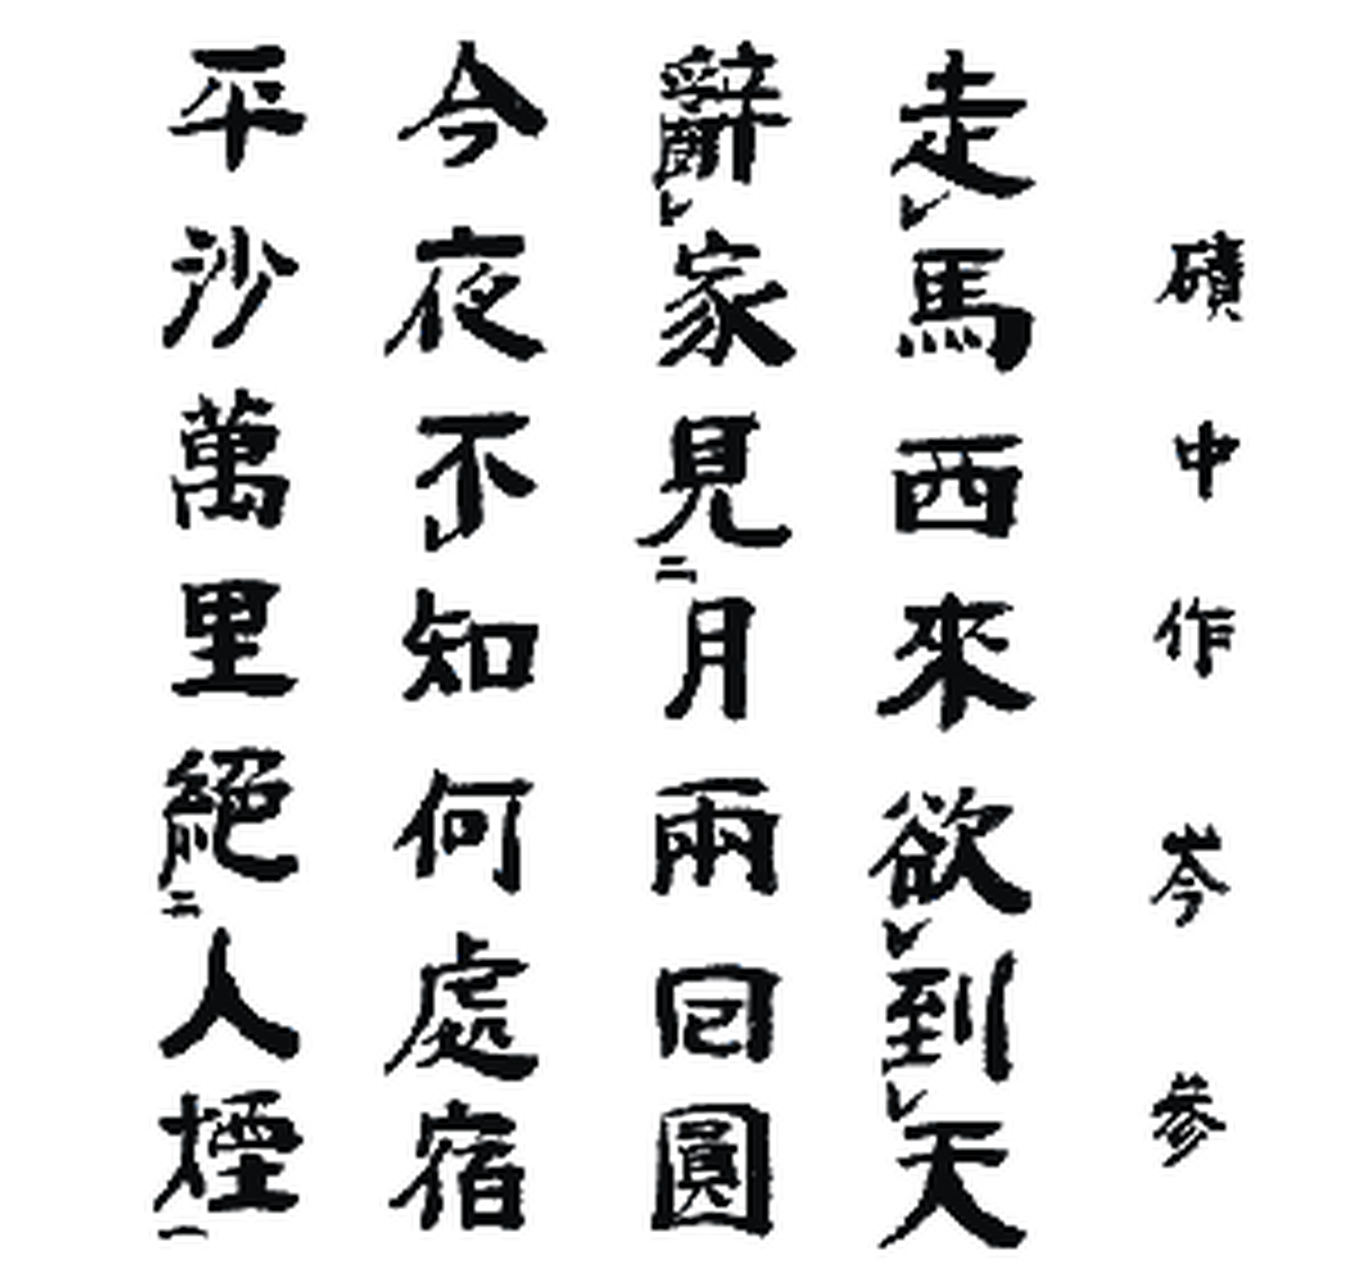 磧中作 岑參
走レ馬西來欲レ到レ天
辭レ家見二月兩回圓
今夜不レ知何處宿
平沙萬里絕二人煙一